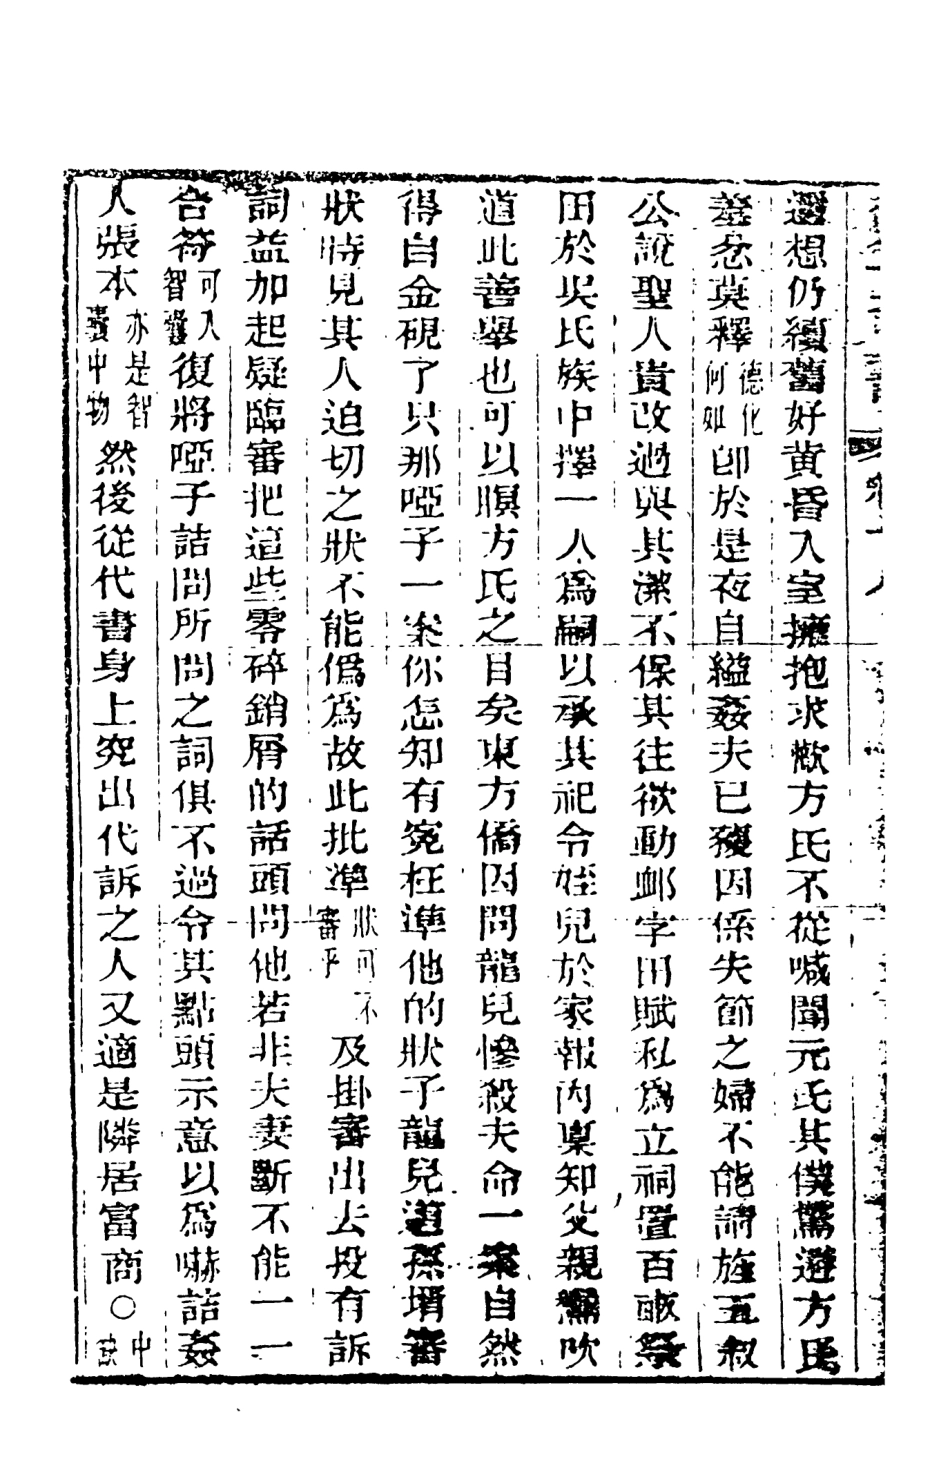 還想仍續舊好黄昏入室擁抱求歡方氏不從喊聞元氏其僕驚避方氏
羞忿莫釋德化何如卽於是夜自縊姦夫已獲因係失節之婦不能請旌五叙
公說聖人貴改過與其潔不保其往欲動邺字田賦私爲立祠置百畝祭
田於吳氏族中擇一人爲嗣以承其祀令姪兒於家報内稟知父親鼐吹
道此善舉也可以瞑方氏之目矣東方僑因問龍兒慘殺夫命一案自然
得自金硯了只那啞子一案你怎知有寃枉準他的狀子龍兒道孫壻審
狀時見其人迫切之狀不能僞爲故此批準狀可不審乎及掛審出去投有訴
詞益加起疑臨審把這些零碎銷屑的話頭問他若非夫妻斷不能一一
合符可入智囊復將啞子詰問所問之詞俱不過令其點頭示意以爲嚇詰姦
人張本亦是智囊中物然後從代書身上究出代訴之人又適是隣居富商○中缺